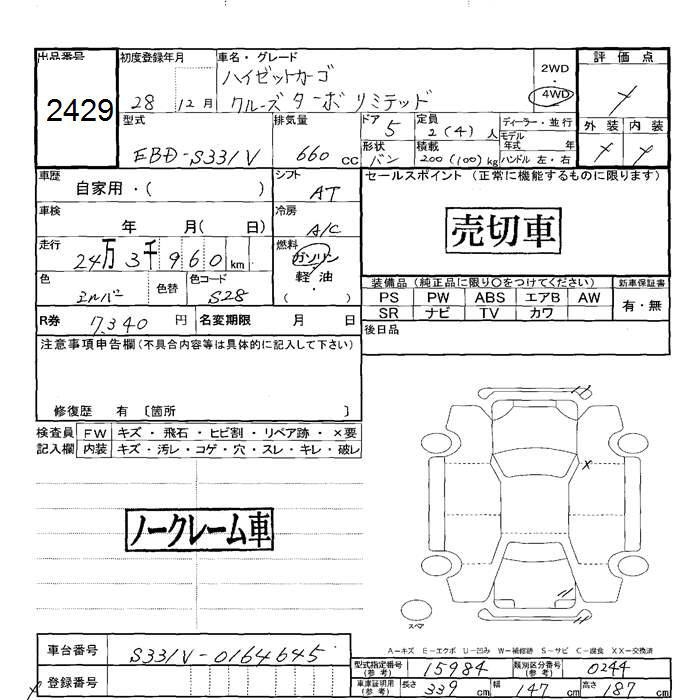 出品番号 初度登録年月 車名・グレード 評価点
2429 28 12月 ハイゼットカーゴ 2WD
クルーズ ターボ リミテッド 4WD
型式 排気量 ドア 定員 ディーラー・並行 外装 内装
EBD-S331V 660 cc 5 2(4)人 モデル年式 年
形状 積載 ハンドル 左・右
バン 200(100)kg
車歴 自家用・( ) シフト AT セールスポイント (正常に機能するものに限ります)
車検 年 月( 日) 冷房 A/C 売切車
走行 24万3千960km 燃料 ガソリン・軽油 ( )
色 シルバー 色替 色コード S28 装備品 (純正品に限り○をつけてください) 新車保証書
PS PW ABS エアB AW 有・無
R券 7,340円 名変期限 月 日 SR ナビ TV カワ
注意事項申告欄(不具合内容等は具体的に記入して下さい) 後日品
修復歴 有 〔箇所 〕
検査員 FW キズ・飛石・ヒビ割・リペア跡・×要
記入欄 内装 キズ・汚レ・コゲ・穴・スレ・キレ・破レ
ノークレーム車
スペア
A-キズ E-エクボ U-凹み W-補修跡 S-サビ C-腐食 XX-交換済
車台番号 S331V-0164645 型式指定番号(参考) 15984 類別区分番号(参考) 0244
登録番号 車庫証明用(参考) 長さ 339cm 幅 147cm 高さ 187cm